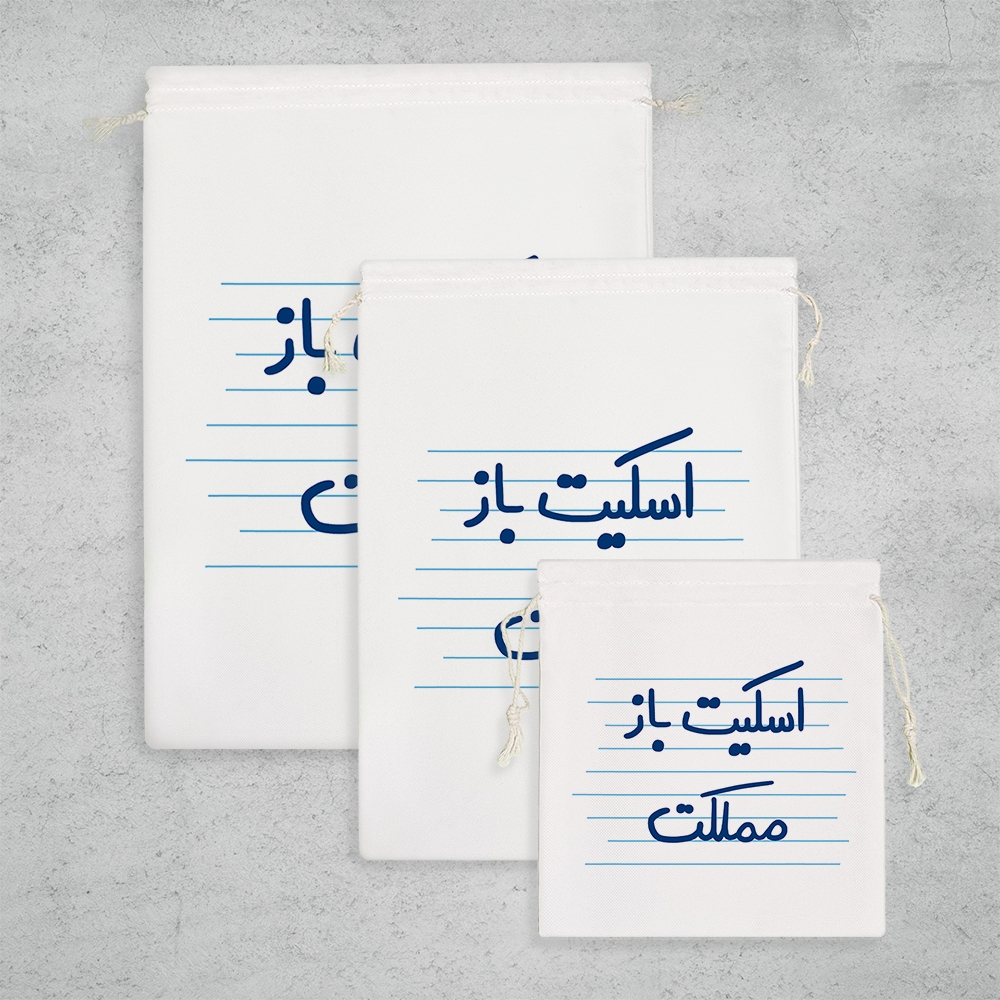 باز
اسکیت باز
اسکیت باز
مملکت